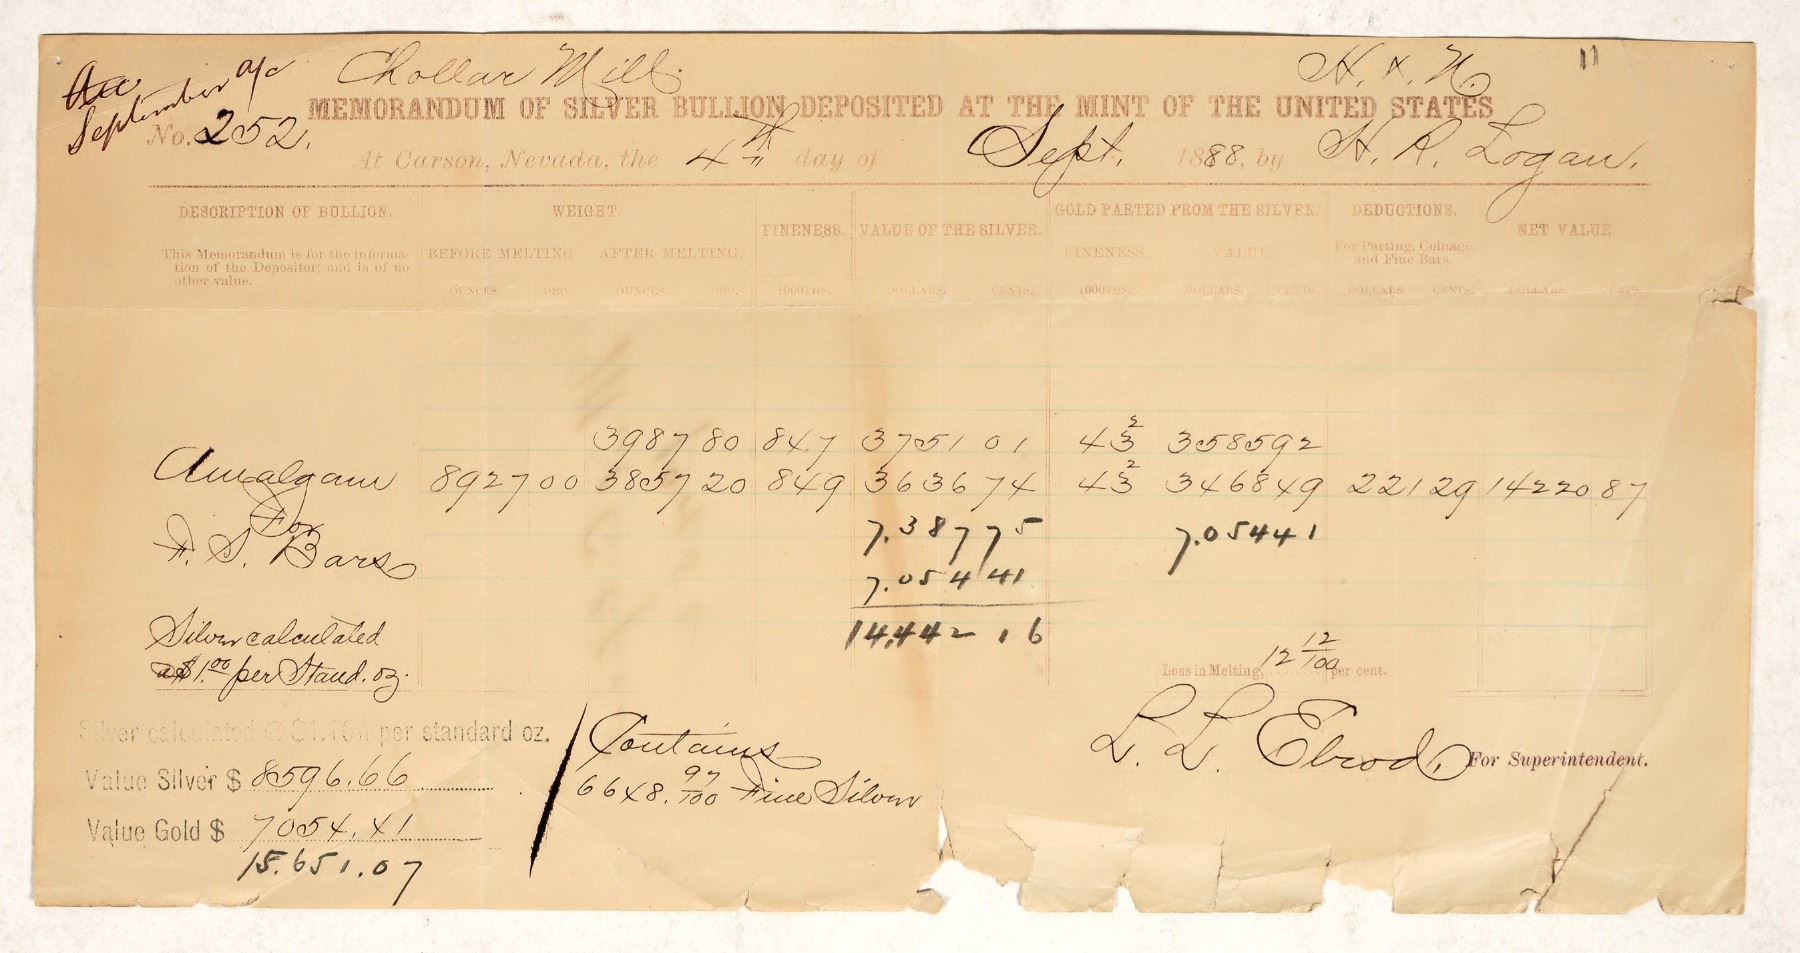 Chollar Mill. H. & N. 11
Auc
September a/c
MEMORANDUM OF SILVER BULLION DEPOSITED AT THE MINT OF THE UNITED STATES
No. 252.
At Carson, Nevada, the 4th day of Sept. 1888, by H. R. Logan.
DESCRIPTION OF BULLION. WEIGHT. FINENESS. VALUE OF THE SILVER. GOLD PARTED FROM THE SILVER. DEDUCTIONS. NET VALUE.
This Memorandum is for the informa-
tion of the Depositor, and is of no
other value.
BEFORE MELTING. AFTER MELTING. FINENESS. VALUE. For Parting, Coinage,
and Fine Bars.
OUNCES. DEC. OUNCES. DEC. 1000THS. DOLLARS. CENTS. 1000THS. DOLLARS. CENTS. DOLLARS. CENTS. DOLLARS. CENTS.
3987 80 847 3751 01 43 2 3585 92
Amalgam 8927 00 3857 20 849 3636 74 43 2 3468 49 221 29 14220 87
For
F. S. Bars
7.387 75 7.054 41
7.054 41
14,442 16
Silver calculated
a $1.00 per Stand. oz.
Loss in Melting, 12 12/100 per cent.
Silver calculated @ $1.16 4 per standard oz.
Value Silver $ 8596.66
Value Gold $ 7054.41
15.651.07
Contains
6648.97/100 Fine Silver
L. L. Elrod, For Superintendent.